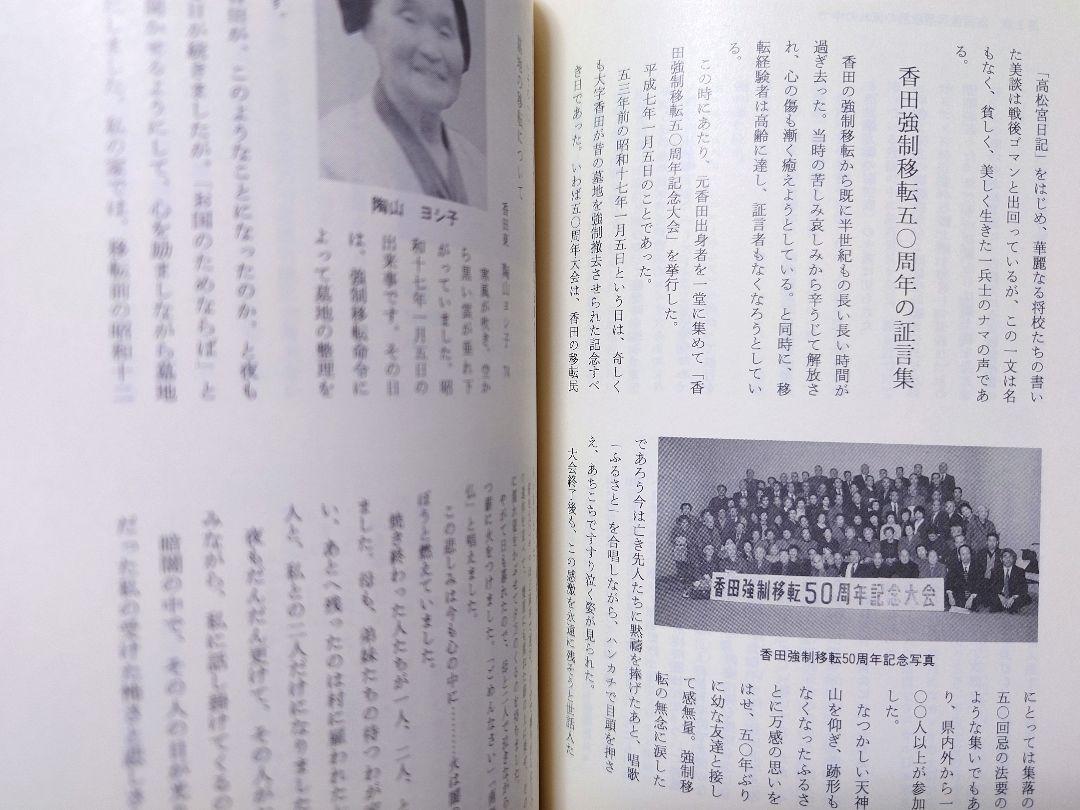 「高松宮日記」をはじめ、華麗なる将校たちの書い
た美談は戦後ゴマンと出回っているが、この一文は名
もなく、貧しく、美しく生きた一兵士のナマの声であ
る。
香田強制移転五〇周年の証言集
香田の強制移転から既に半世紀もの長い長い時間が
過ぎ去った。当時の苦しみ哀しみから辛うじて解放さ
れ、心の傷も漸く癒えようとしている。と同時に、移
転経験者は高齢に達し、証言者もなくなろうとしてい
る。
この時にあたり、元香田出身者を一堂に集めて「香
田強制移転五〇周年記念大会」を挙行した。
平成七年一月五日のことであった。
五三年前の昭和十七年一月五日という日は、奇しく
も大字香田が昔の墓地を強制撤去させられた記念すべ
き日であった。いわば五〇周年大会は、香田の移転民
香田強制移転50周年記念大会
香田強制移転50周年記念写真
にとっては集落の
五〇回忌の法要の
ような集いでもあ
り、県内外から一
〇〇人以上が参加
した。
なつかしい天神
山を仰ぎ、跡形も
なくなったふるさ
とに万感の思いを
はせ、五〇年ぶり
に幼な友達と接し
て感無量。強制移
転の無念に涙した
であろう今は亡き先人たちに黙禱を捧げたあと、唱歌
「ふるさと」を合唱しながら、ハンカチで目頭を押さ
え、あちこちですすり泣く姿が見られた。
大会終了後も、この感激を永遠に残そうと世話人た
香田東 陶山ヨシ子
陶山 ヨシ子
寒風が吹き、空か
ら黒い雲が垂れ下
がっていました。昭
和十七年一月五日の
出来事です。その日
は、強制移転命令に
よって墓地の整理を
が、このようなことになったのか。と夜も
日が続きましたが、「お国のためならば」と
聞かせるようにして、心を励ましながら墓地
しました。私の家では、移転前の昭和十二
に火をつけました。「ごめんなさい
仏」と唱えました。
この悲しみは今も心の中に………火は
ぼうと燃えていました。
焼き終わった人たちが一人、二人、と
ました。母も、弟妹たちの待つわが
い、あとへ残ったのは村に雇われた
人と、私との二人だけになりました
夜もだんだん更けて、その人が
みながら、私に話し掛けてくるの
暗闇の中で、その人の目が光る
だった私の受けた怖さと悲しさ